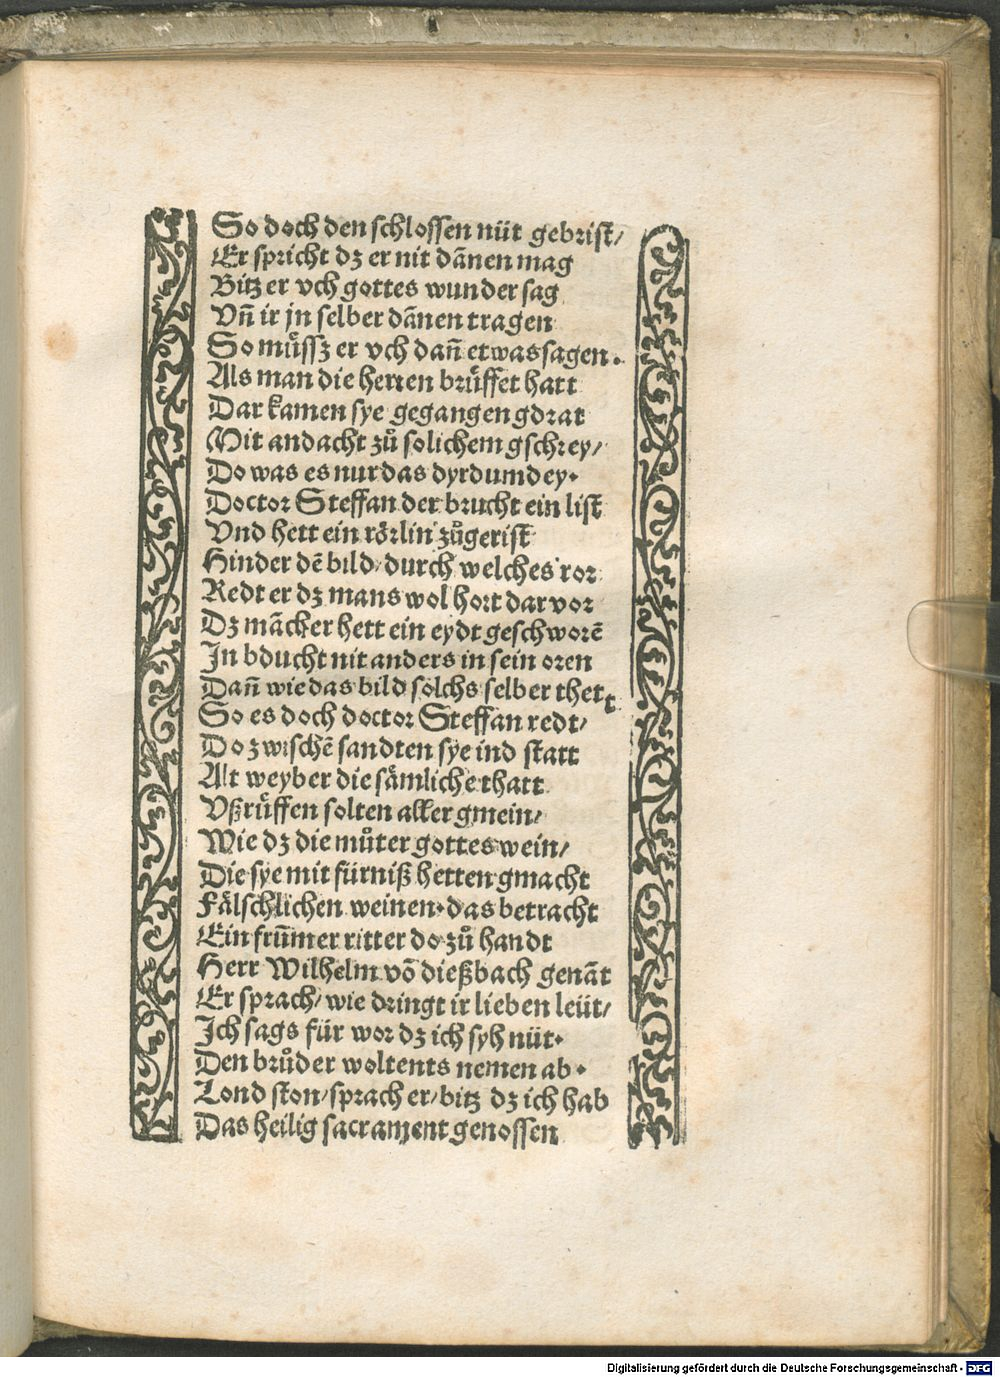 So doch den schlossen nüt gebrist/
Er spricht dz er nit dãnen mag
Bitz er vch gottes wunder sag
Vñ ir jn selber dãnen tragen
So muͤssz er vch dañ etwas sagen.
Als man die herren bruͤffet hatt
Dar kamen sye gegangen gdrat
Mit andacht zuͦ solichem gschrey/
Do was es nur das dyrdumdey.
Doctor Steffan der brucht ein list
Vnd hett ein roͤrlin zuͦgerist
Hinder dẽ bild/durch welches ror
Redt er dz mans wol hort dar vor
Dz mãcker hett ein eydt geschworẽ
In bducht nit anders in sein oren
Dañ wie das bild solchs selber thett
So es doch doctor Steffan redt/
Do zwischẽ sandten sye ind statt
Alt weyber die saͤmliche thatt
Vßruͤffen solten aller gmein/
Wie dz die muͦter gottes wein/
Die sye mit fürniß hetten gmacht
Faͤlschlichen weinen.das betracht
Ein frũmer ritter do zuͦ handt
Herr Wilhelm võ dießbach genãt
Er sprach/wie dringt ir lieben leüt/
Ich sags für wor dz ich syh nüt.
Den bruͦder woltents nemen ab.
Lond ston/sprach er/bitz dz ich hab
Das heilig sacrament genossen
Digitalisierung gefördert durch die Deutsche Forschungsgemeinschaft - DFG